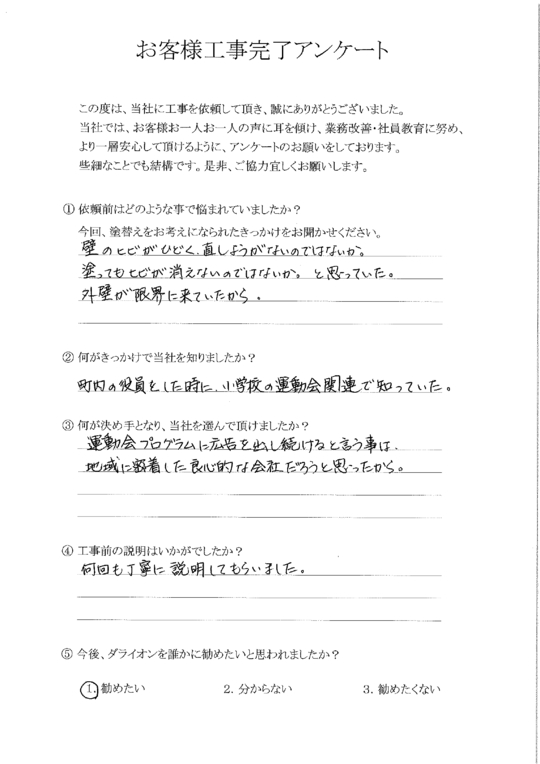 お客様工事完了アンケート
この度は、当社に工事を依頼して頂き、誠にありがとうございました。
当社では、お客様お一人お一人の声に耳を傾け、業務改善・社員教育に努め、
より一層安心して頂けるように、アンケートのお願いをしております。
些細なことでも結構です。是非、ご協力宜しくお願いします。
① 依頼前はどのような事で悩まれていましたか？
今回、塗替えをお考えになられたきっかけをお聞かせください。
壁のヒビがひどく、直しようがないのではないか。
塗ってもヒビが消えないのではないか。と思っていた。
外壁が限界に来ていたから。
② 何がきっかけで当社を知りましたか？
町内の役員をした時に、小学校の運動会関連で知っていた。
③ 何が決め手となり、当社を選んで頂けましたか？
運動会プログラムに広告を出し続けると言う事は、
地域に密着した良心的な会社だろうと思ったから。
④ 工事前の説明はいかがでしたか？
何回も丁寧に説明してもらいました。
⑤ 今後、ダライオンを誰かに勧めたいと思われましたか？
1. 勧めたい 2. 分からない 3. 勧めたくない